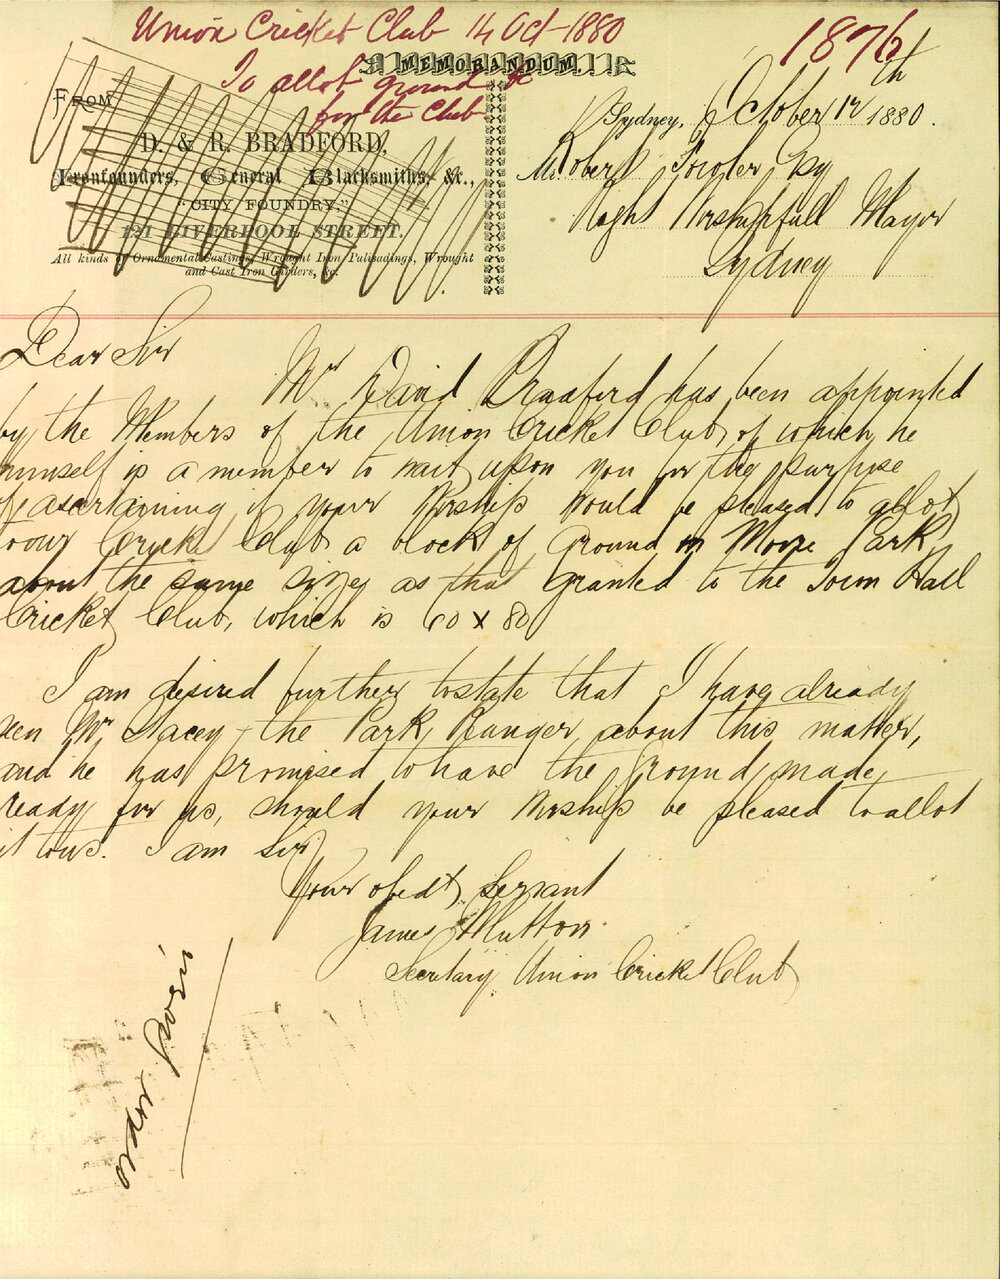 Union Cricket Club 14 Oct 1880
1876
To allot ground &c
for the Club
MEMORANDUM.
FROM
D. & R. BRADFORD,
Ironfounders, General Blacksmiths, &c.,
"CITY FOUNDRY,"
121 LIVERPOOL STREET.
All kinds of Ornamental Castings, Wrought Iron Palisadings, Wrought
and Cast Iron Girders, &c.
Sydney, October 12th 1880.
M Robert Fowler Esq
Right Worshipfull Mayor
Sydney
Dear Sir
Mr David Bradford has been appointed
by the Members of the Union Cricket Club, of which he
himself is a member to wait upon you for the purpose
of ascertaining if your Worship would be pleased to allot
to our Cricket Club a block of Ground in Moore Park,
about the same size as that Granted to the Town Hall
Cricket Club, which is 60 x 80
I am desired further to state that I have already
seen Mr Stacey the Park Ranger about this matter,
and he has promised to have the Ground made
ready for us, should your Worship be pleased to allot
it to us. I am Sir
Your obedt Servant
James Mutton
Secretary Union Cricket Club
order given